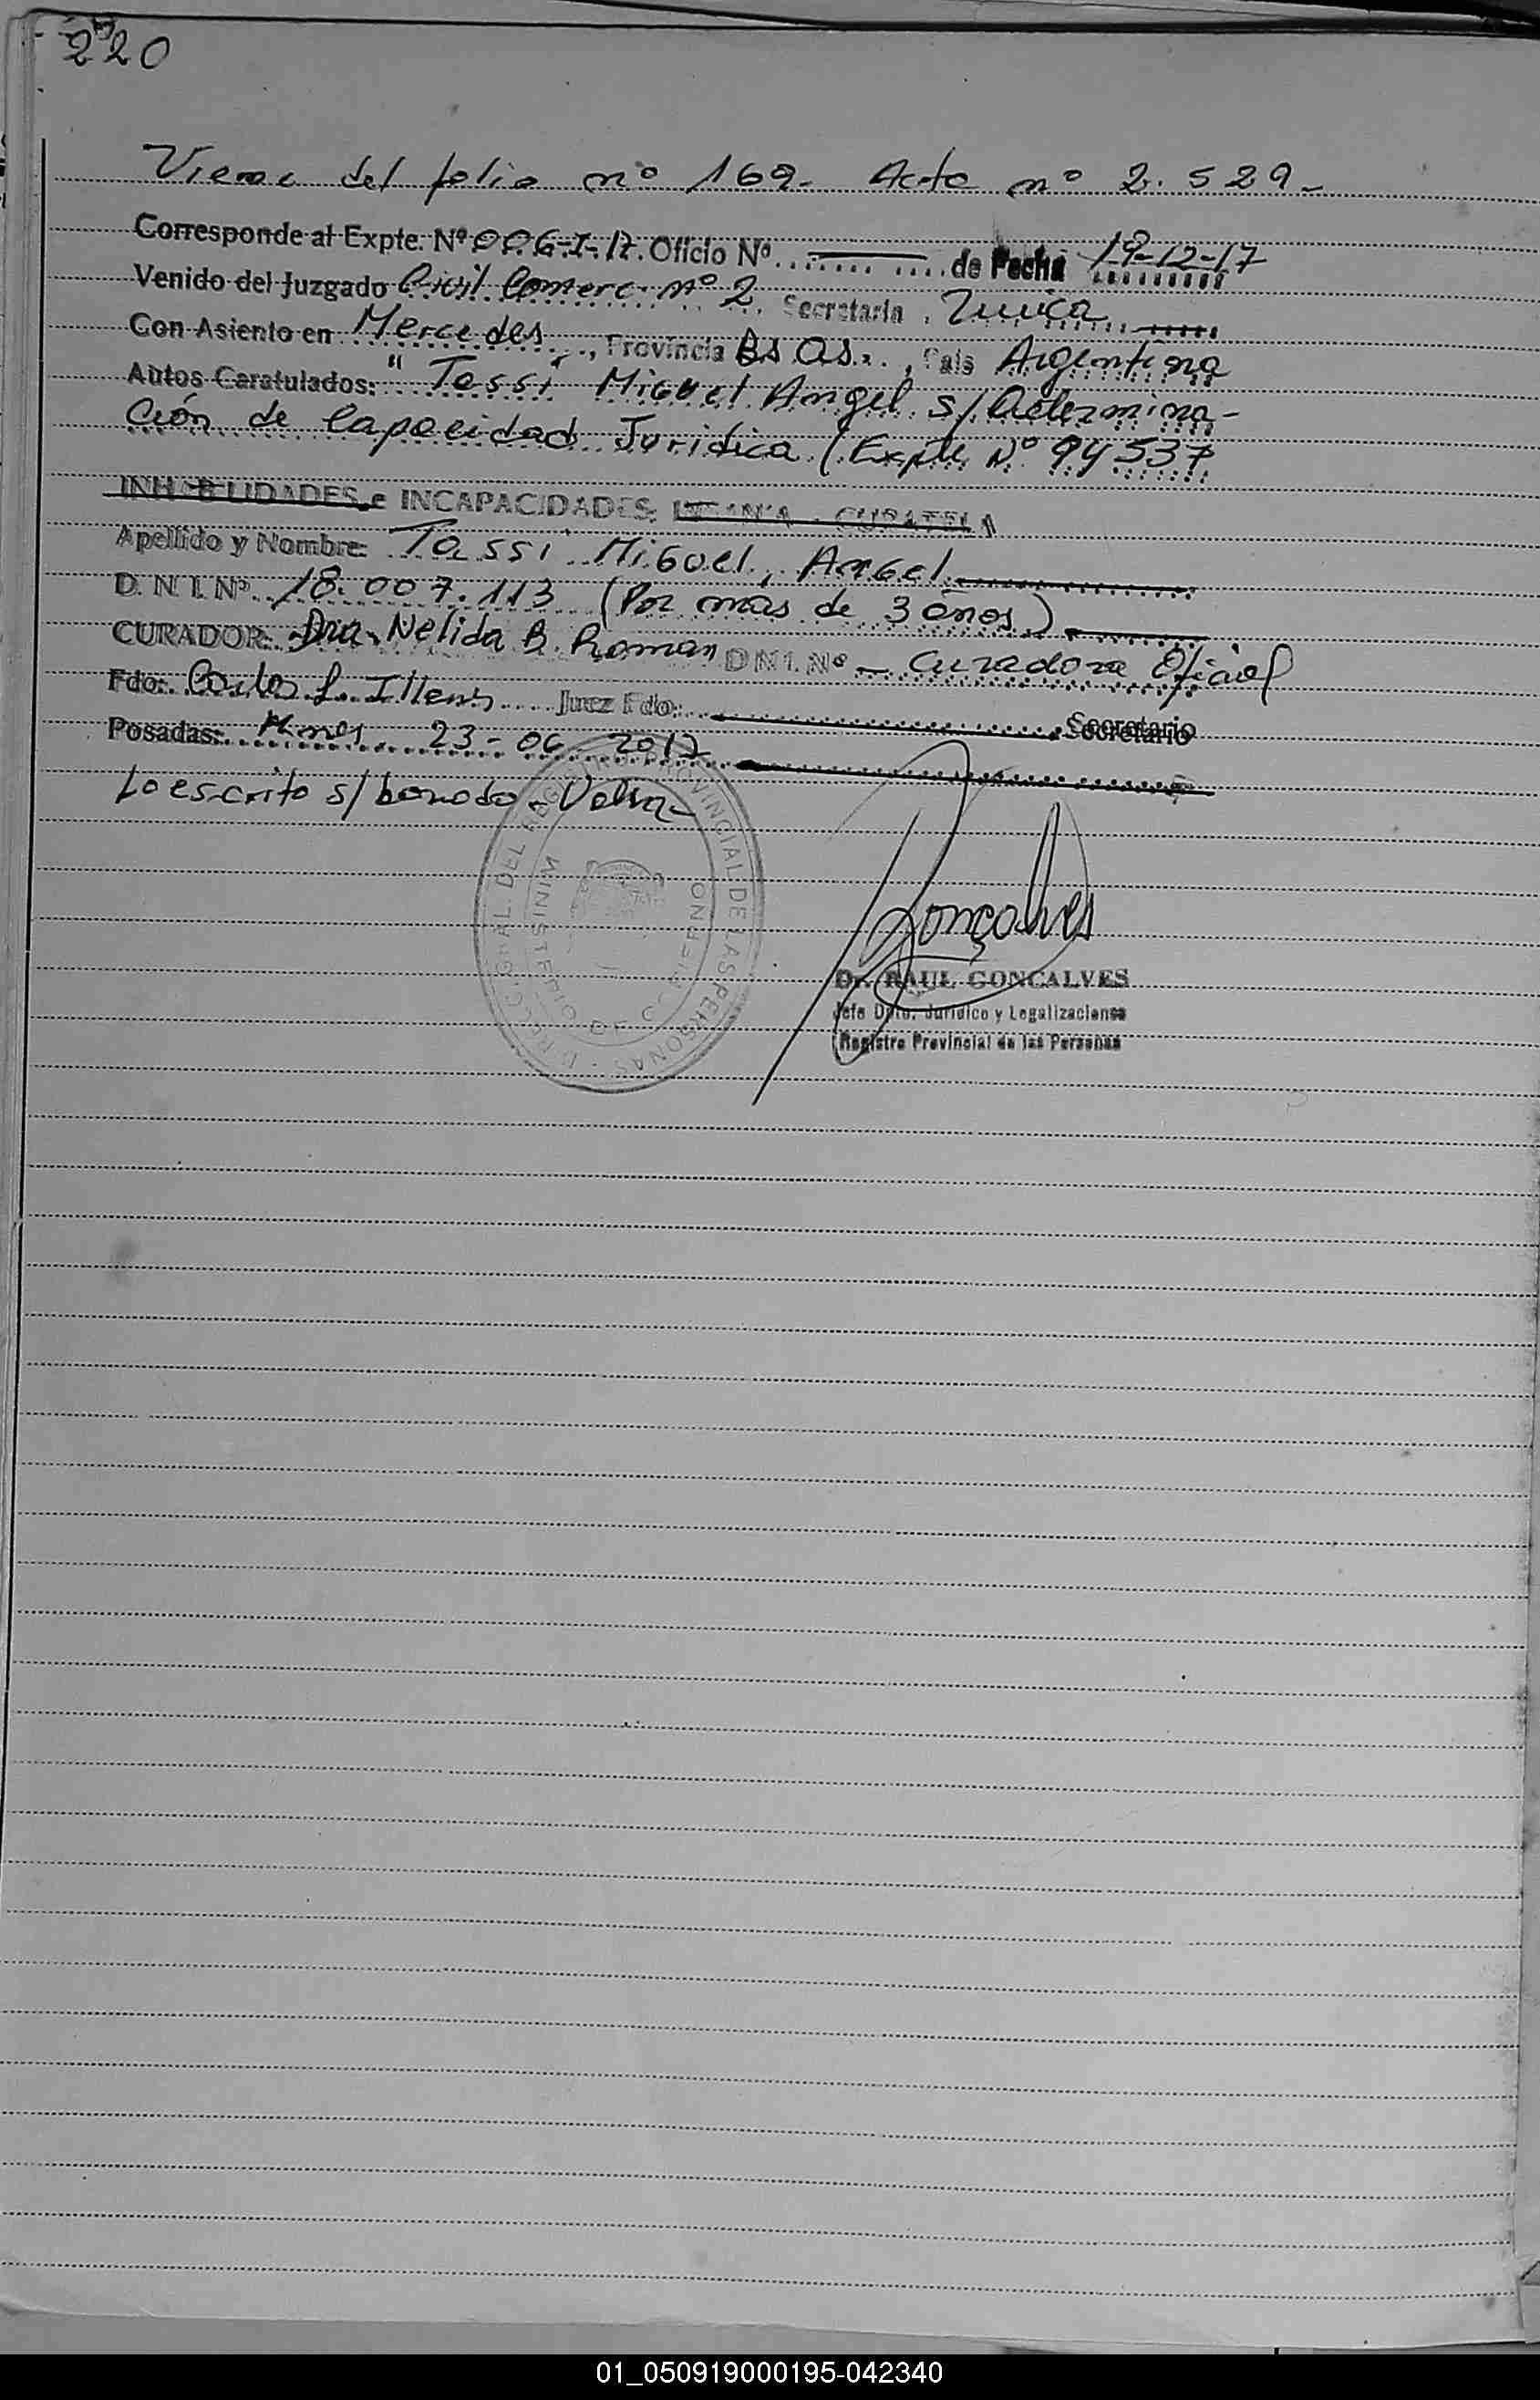 220
Viene del folio nº 169- Acta nº 2.529-
Corresponde al Expte. Nº 006-I-17. Oficio Nº ........... de Fecha 19-12-17
Venido del Juzgado Civil Comerc. nº 2. Secretaria,
Con Asiento en Mercedes, Provincia Bs As., Pais Argentina
Autos Caratulados: "Tassi Miguel Angel s/ Determina-
ción de Capacidad Juridica (Expte Nº 94537
INHABILIDADES e INCAPACIDADES: CURATELA
Apellido y Nombre: Tassi Miguel, Angel
D. N. I. Nº. 18.007.113 (Por mas de 3 años)
CURADOR: Dra. Nelida B. Roman DNI. Nº - Curadora Oficial
Fdo: Carlos L. Illens Juez Fdo: Secretario
Posadas: Mnes 23-06-2017
Lo escrito s/ borrado - Vale-
DIRECCION GRAL. DEL REGISTRO PROVINCIAL DE LAS PERSONAS
MINISTERIO DE GOBIERNO
Gonçalves
Dr. RAUL GONCALVES
Jefe Dpto. Juridico y Legalizaciones
Registro Provincial de las Personas
01_050919000195-042340